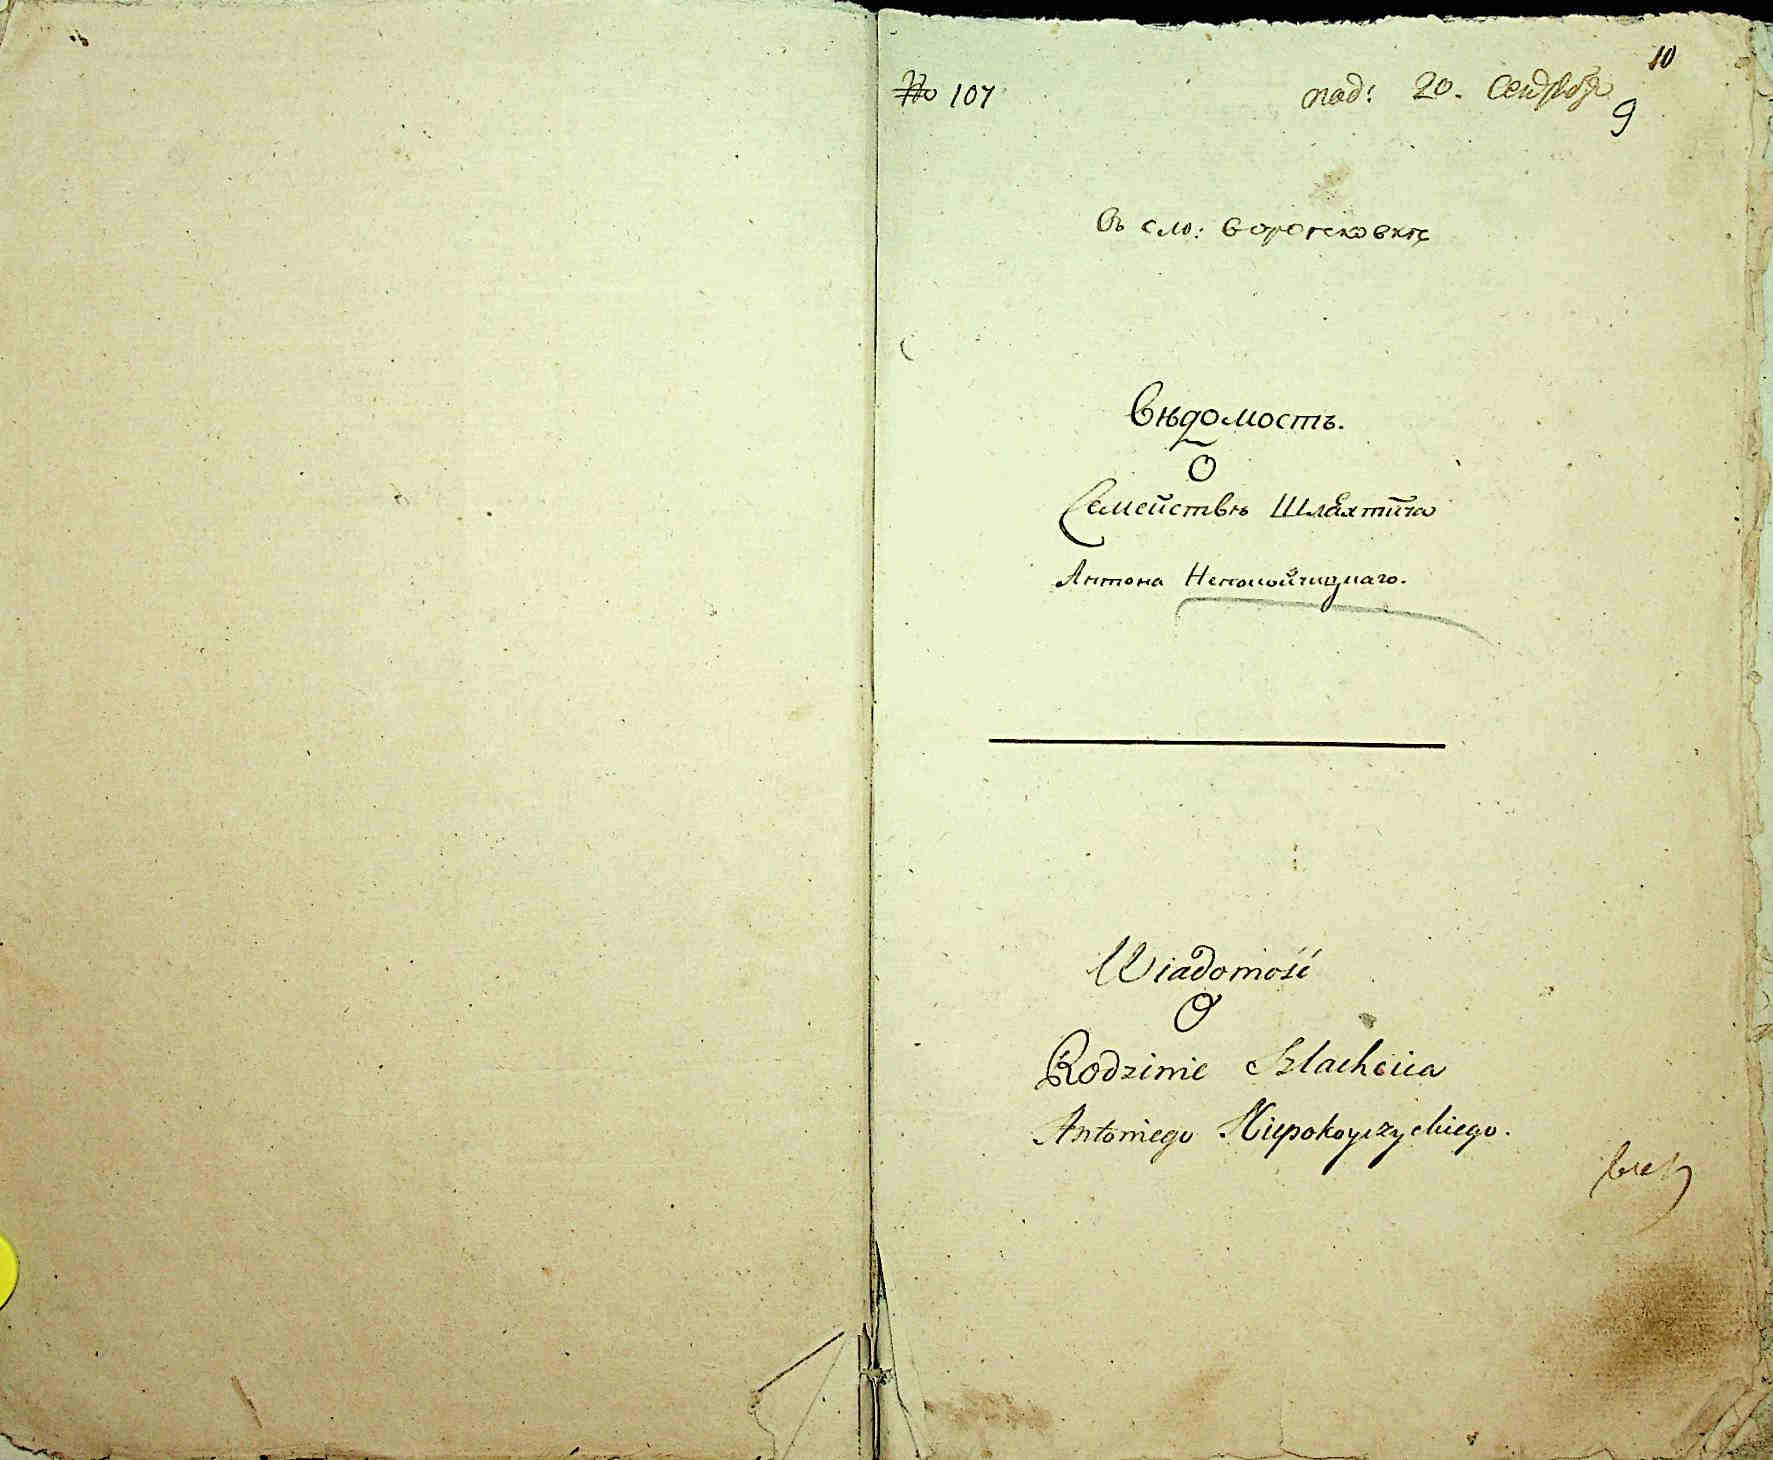 10
No 107 под: 20. Сентября
9
Въ сло: боровковкѣ
Вѣдомость.
О
Семействѣ Шляхтича
Антона Непокойчицкаго.
Wiadomość
O
Rodzinie Szlachcica
Antoniego Niepokoyczyckiego.